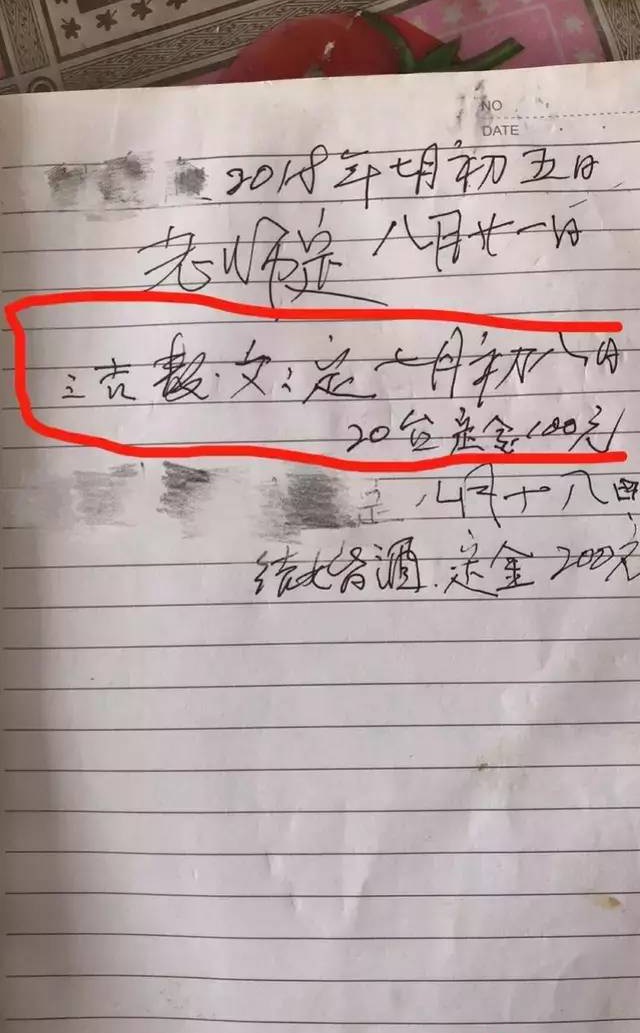 NO
DATE
2018年七月初五日
老师定 八月廿一日
定 七月初八日
20台定金100元
八月十八日
结婚酒.定金200元